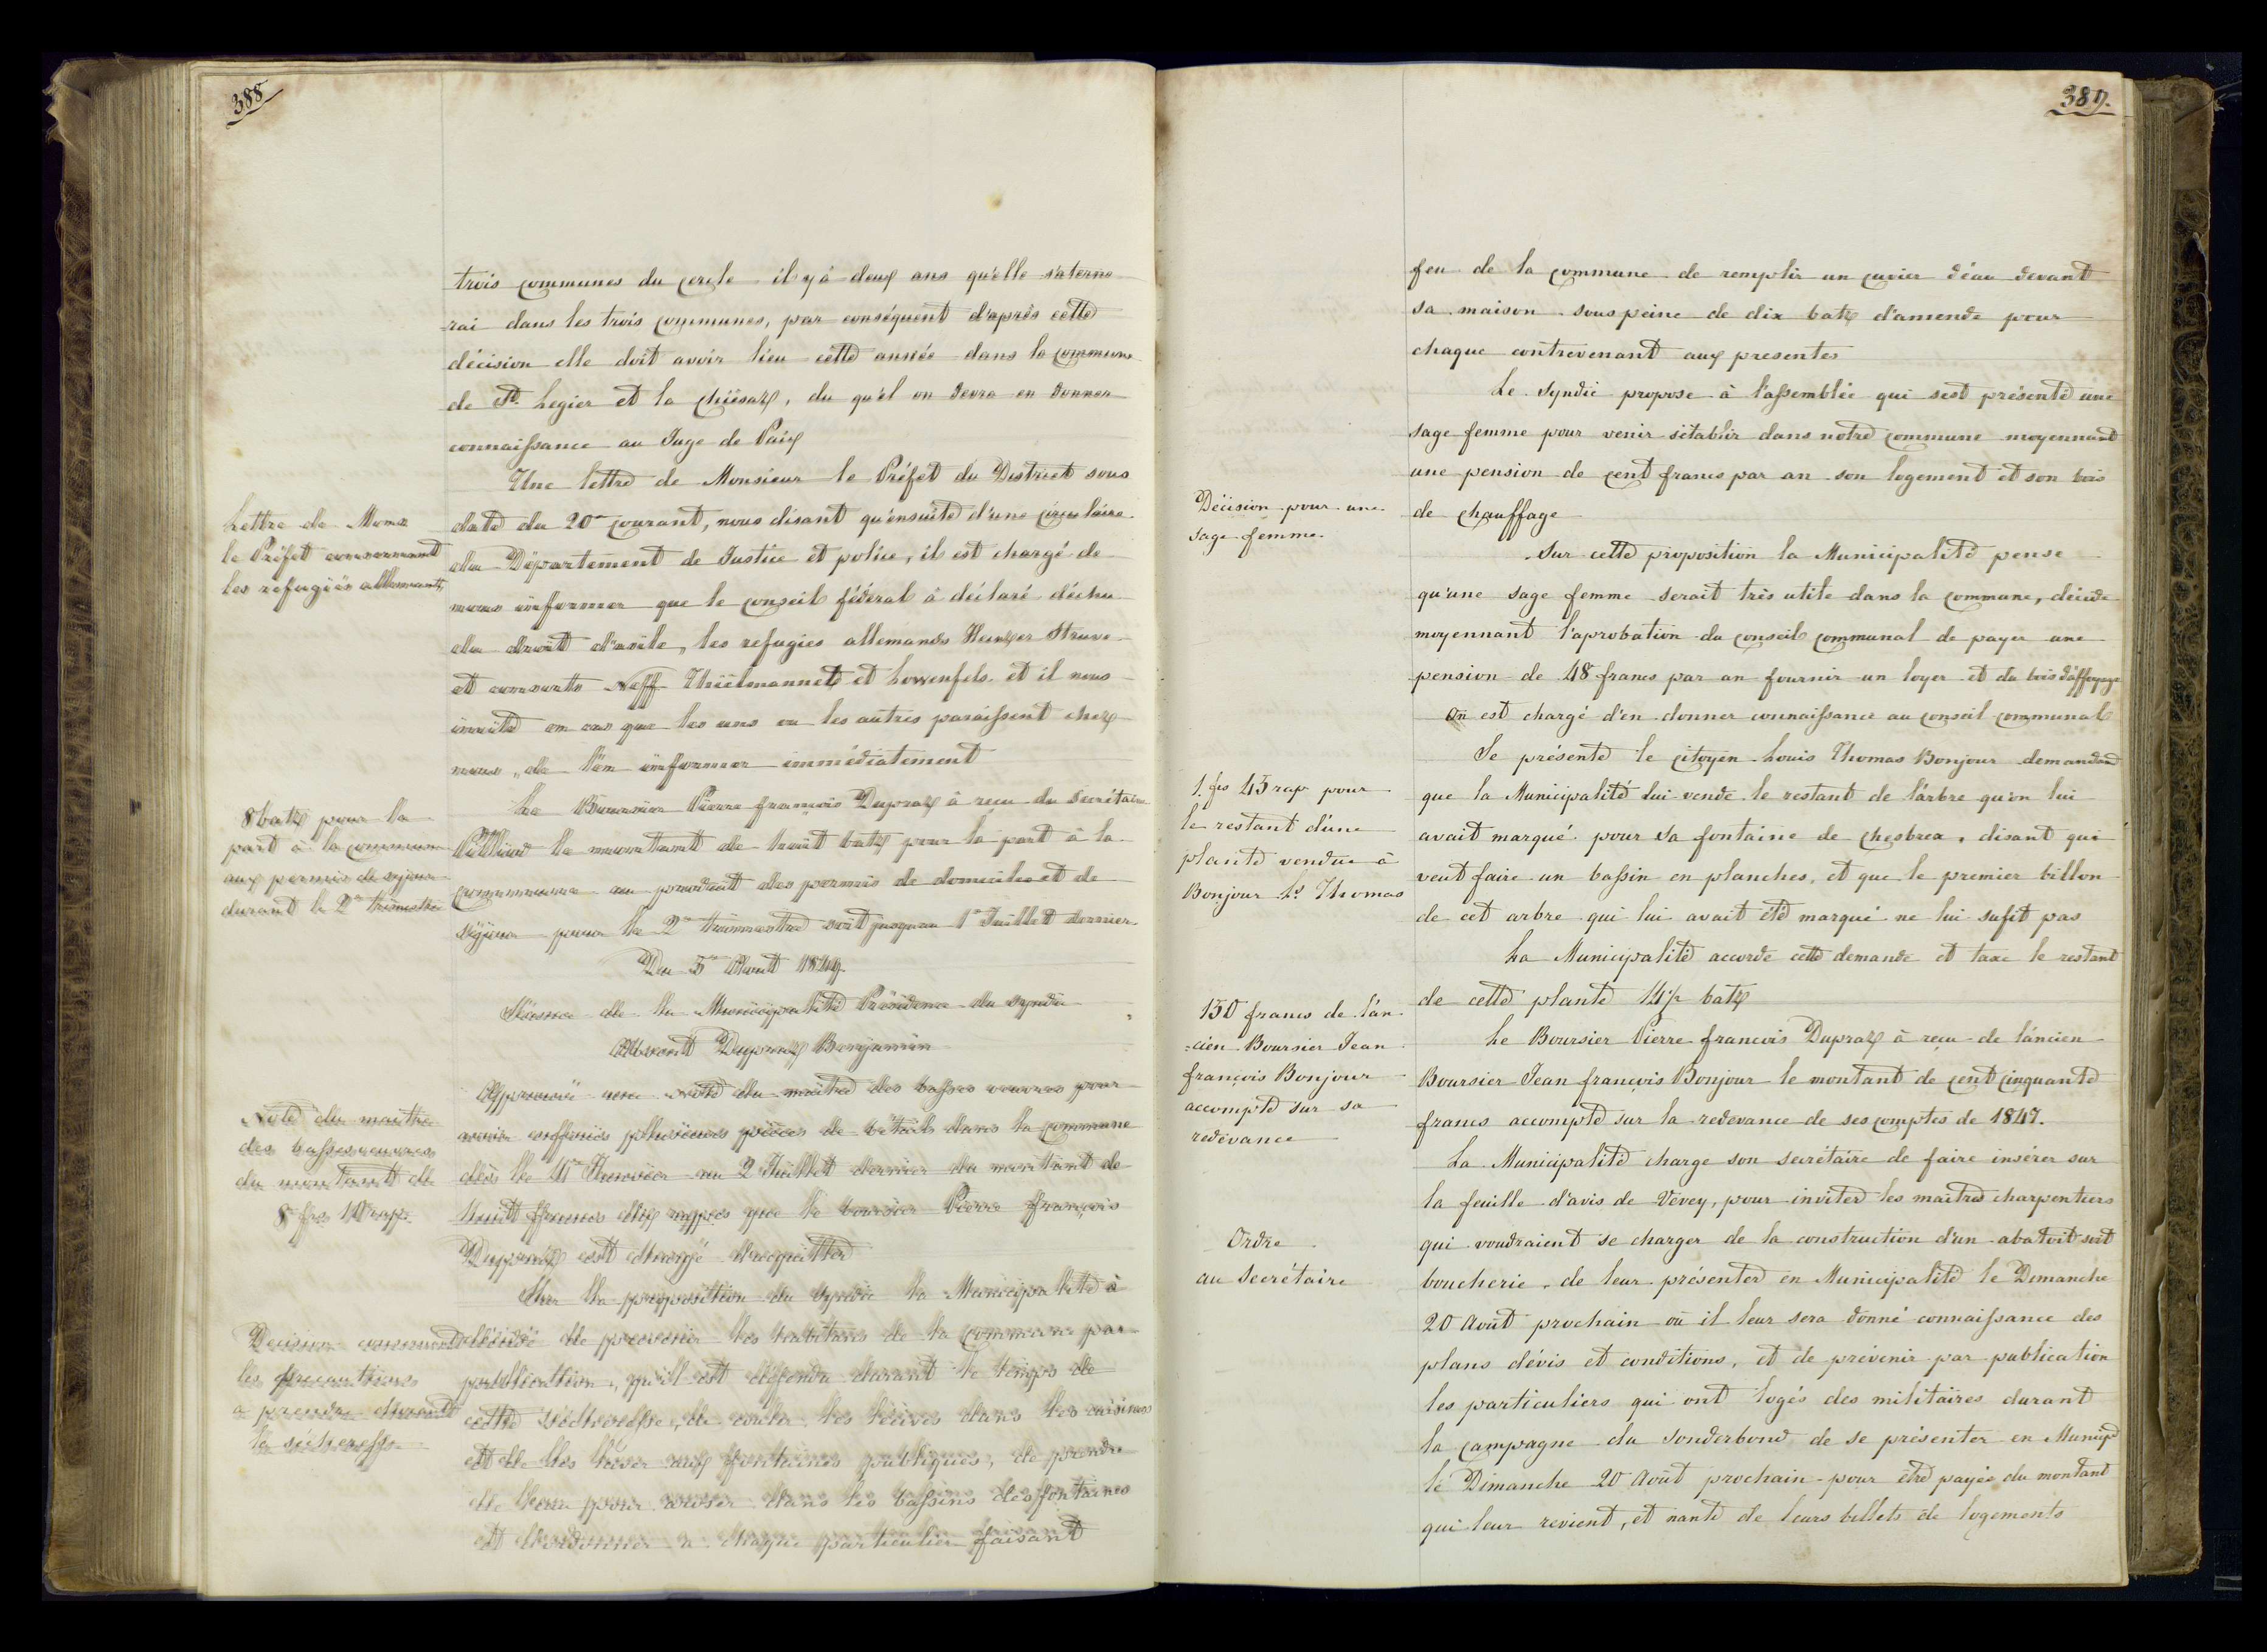 388
trois communes du cercle il y à deux ans qu'elle s'aterne
rai dans les trois communes, par conséquent d'après cette
décision elle doit avoir lieu cette année dans la commune
de St. Legier et la Chiésaz, du qu'el on devra en donner
connaissance au Juge de Paix
Lettre de Monsr
le Préfet concernant
les refugiés allemants
Une lettre de Monsieur le Préfet du District sous
date du 20e courant, nous disant qu'ensuite d'une circulaire
du Département de Justice et police, il est chargé de
nous informer que le conseil fédéral à déclaré déchu
du droit d'asile, les refugies allemands Struve
et consorts Neff Thielmannet et Lowenfels et il nous
invite en cas que les uns ou les autres paraissent chez
nous, de l'en informer immédiatement
8 batz pour la
part à la commune
aux permis de sejour
durant le 2e trimestre
Le Boursier Pierre françois Dupraz à reçu du secrétaire
le montant de huit batz pour la part à la
commune au produit des permis de domiciles et de
séjour pour le 2e trimestre soit jusquau 1er Juillet dernier
Du 5e Aout 1849.
Séance de la Municipalité Présidence du syndic
Absent Dupraz Benjamin
Note du maitre
des basses oeuvres
du montant de
8 frs 10 rap.
Approuvé une note du maître des basses oeuvres pour
avoir enfouies plusieures pièces de bétails dans la commune
dès le 1er Janvier au 2 Juillet dernier du montant de
huit francs dix rappes que le boursier Pierre françois
Dupraz est chargé dacquitter
Decision concernant
les precautions
a prendre durant
la sécheresse
Sur la proposition du Syndic la Municipalité à
décidé de prevenir les habitans de la commune par
publication, qu'il est défendu durant le temps de
cette sécheresse, de couler les lécives dans les cuisines
et de les laver aux fontaines publiques, de prendre
de l'eau pour arroser dans les bassins des fontaines
et d'ordonner a chaque particulier faisant
389.
feu de la commune de remplir un cuvier d'éau devant
sa maison sous peine de dix batz d'amende pour
chaque contrevenant aux presentes
Décision pour une
sage femme.
Le Syndic propose à l'assemblée qui sest présenté une
sage femme pour venir sétablir dans notre commune moyennant
une pension de cent francs par an son logement et son bois
de chauffage
Sur cette proposition la Municipalité pense
qu'une sage femme serait très utile dans la commune, décide
moyennant l'aprobation du conseil communal de payer une
pension de 48 francs par an fournir un loyer et du bois d'affoyage
On est chargé d'en donner connaissance au conseil communal
1. frs 45 rap pour
le restant d'une
plante vendue à
Bonjour Ls Thomas
Se présente le citoyen Louis Thomas Bonjour demandant
que la Municipalité lui vende le restant de l'arbre qu'on lui
avait marqué pour sa fontaine de Chesbrex, disant qui
veut faire un bassin en planches, et que le premier billon
de cet arbre qui lui avait été marqué ne lui sufit pas
La Municipalité accorde cette demande et taxe le restant
de cette plante 14½ batz
150 francs de l'an
=cien Boursier Jean
françois Bonjour
accompte sur sa
redévance
Le Boursier Pierre francois Dupraz à reçu de l'áncien
Boursier Jean françois Bonjour le montant de cent cinquante
francs accompte sur la redevance de ses comptes de 1847.
Ordre
au Secrétaire
La Municipalité charge son secrétaire de faire insérer sur
la feuille d'avis de Vevey, pour inviter les maitres charpentiers
qui voudraient se charger de la construction d'un abatoit soit
boucherie, de leur présenter en Municipalité le Dimanche
20 Août prochain où il leur sera donné connaissance des
plans dévis et conditions, et de prévenir par publication
les particuliers qui ont logés des militaires durant
la campagne du Sonderbond de se présenter en Municip
le Dimanche 20 Août prochain pour être payés du montant
qui leur revient, et nanté de leurs billets de logements